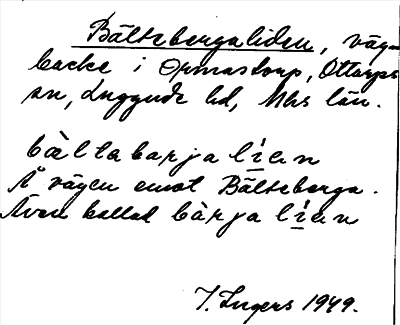 Bältebergaliden, väg-
backe i Ormastorp, Ottarps
sn, Luggude hd, Mhs län.
bàltabarjalíen
Å vägen emot Bälteberga.
Även kallad bàrjalíen
I. Ingers 1949.